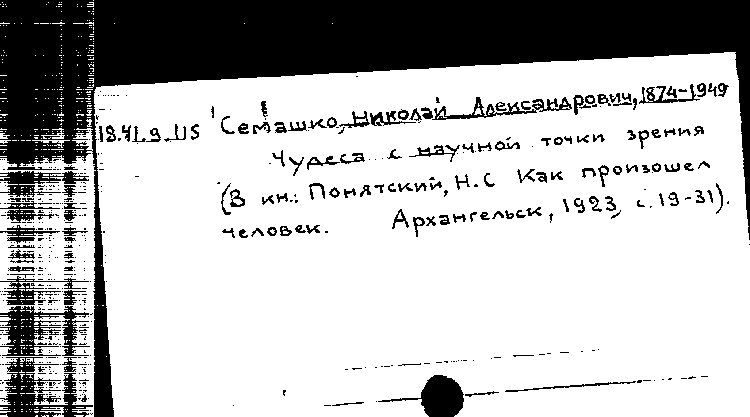 18.41.9.115 Семашко, Николай Александрович, 1874-1949
Чудеса с научной точки зрения
(В кн.: Понятский, Н.С Как произошел
человек. Архангельск, 1923, с. 19-31).